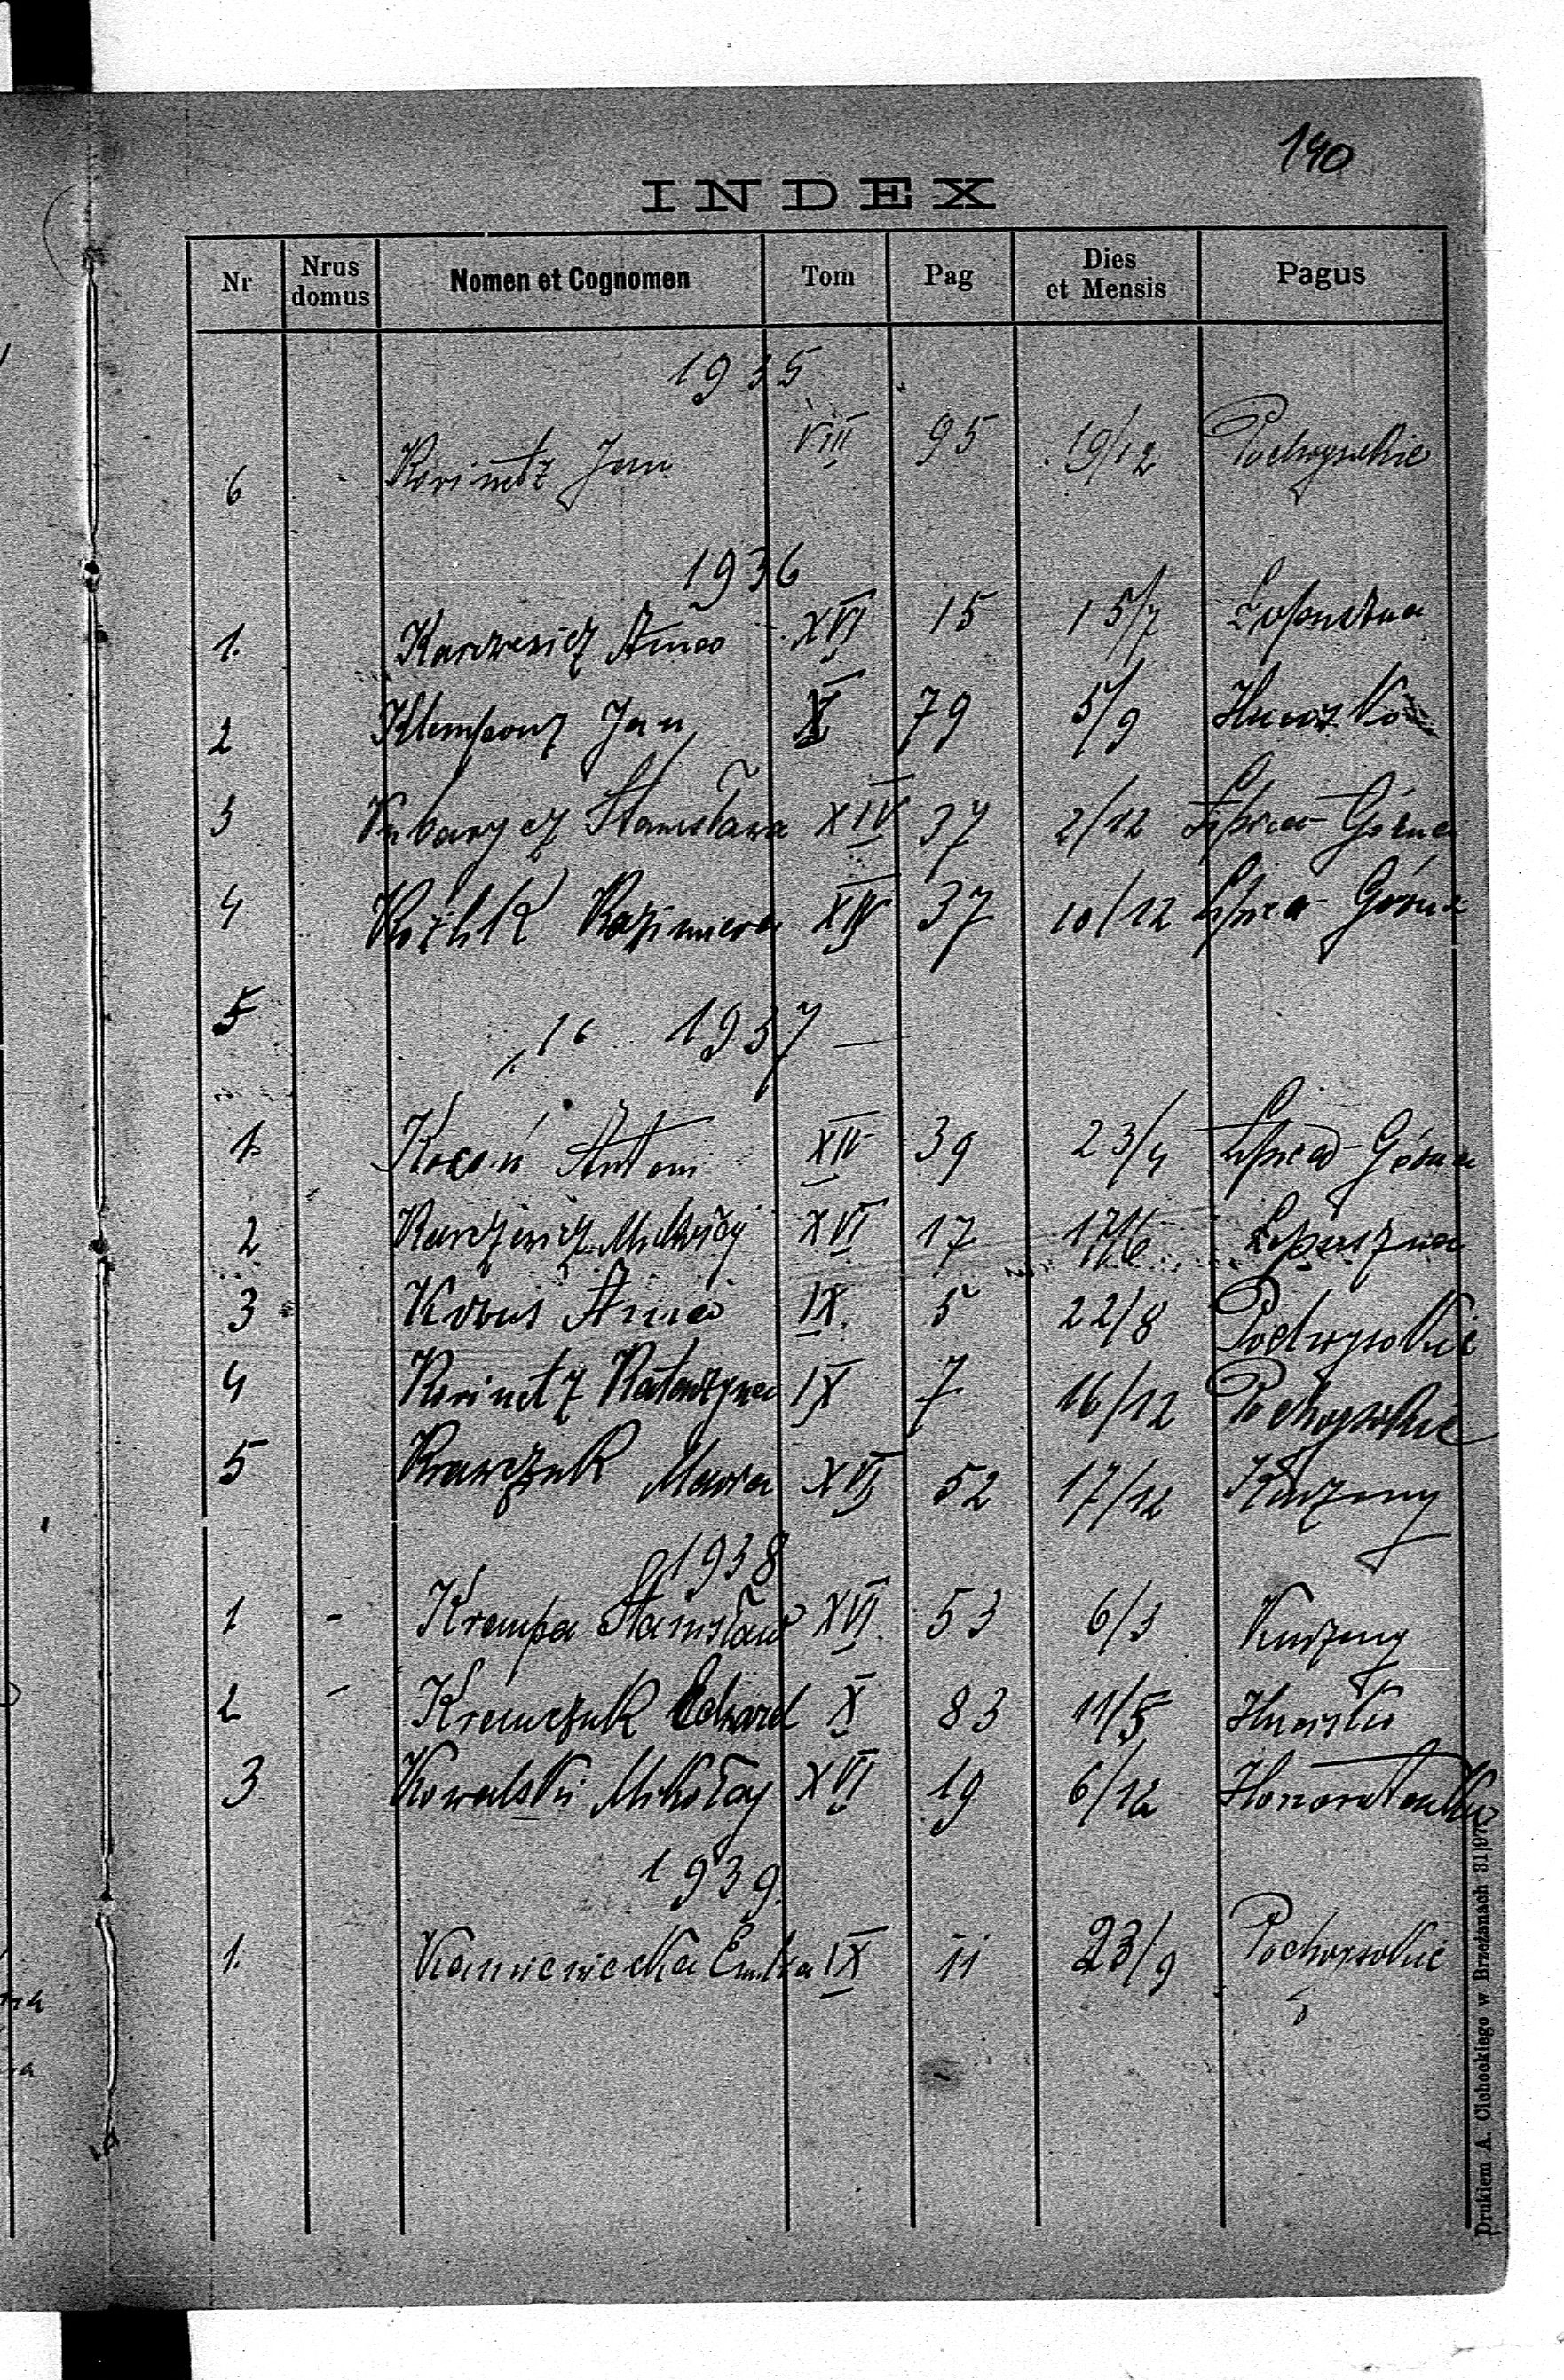 140
INDEX
Nr Nrus domus Nomen et Cognomen Tom Pag Dies et Mensis Pagus
1935
6 Korinetz Jan VIII 95 19/12 Podwysokie
1936
1. Karczewicz Anna XVI 15 15/7 Łopuszna
2 Klempouz Jan X 79 5/9 Hnowsko
3 Kubarycz Stanisława XIV 37 2/12 Lipica-Górna
4 Kazimiera XIV 37 10/12 Lipica Górna
5
1937
1. Kocoń Antoni XIV 39 23/4 Lipica-Górna
2 Karczewicz Mikołaj XVI 17 17/6 Łopuszna
3 Korus Anna IX. 5 22/8 Podwysokie
4 Korinetz Katarzyna IX 7 16/12 Podwysokie
5 Krawczuk Maria XVI 52 17/12 Kurzany
1938
1 - Krempa Stanisław XVI 53 6/3 Kurzany
2 - Krawczuk Edward X 83 11/5
3 Kowalski Mikołaj XVI 19 6/12 Honoratówka
1939.
1. Kamieniecka Emilia IX 11 23/9 Podwysokie
Drukiem A. Cichockiego w Brzeżanach 31|97